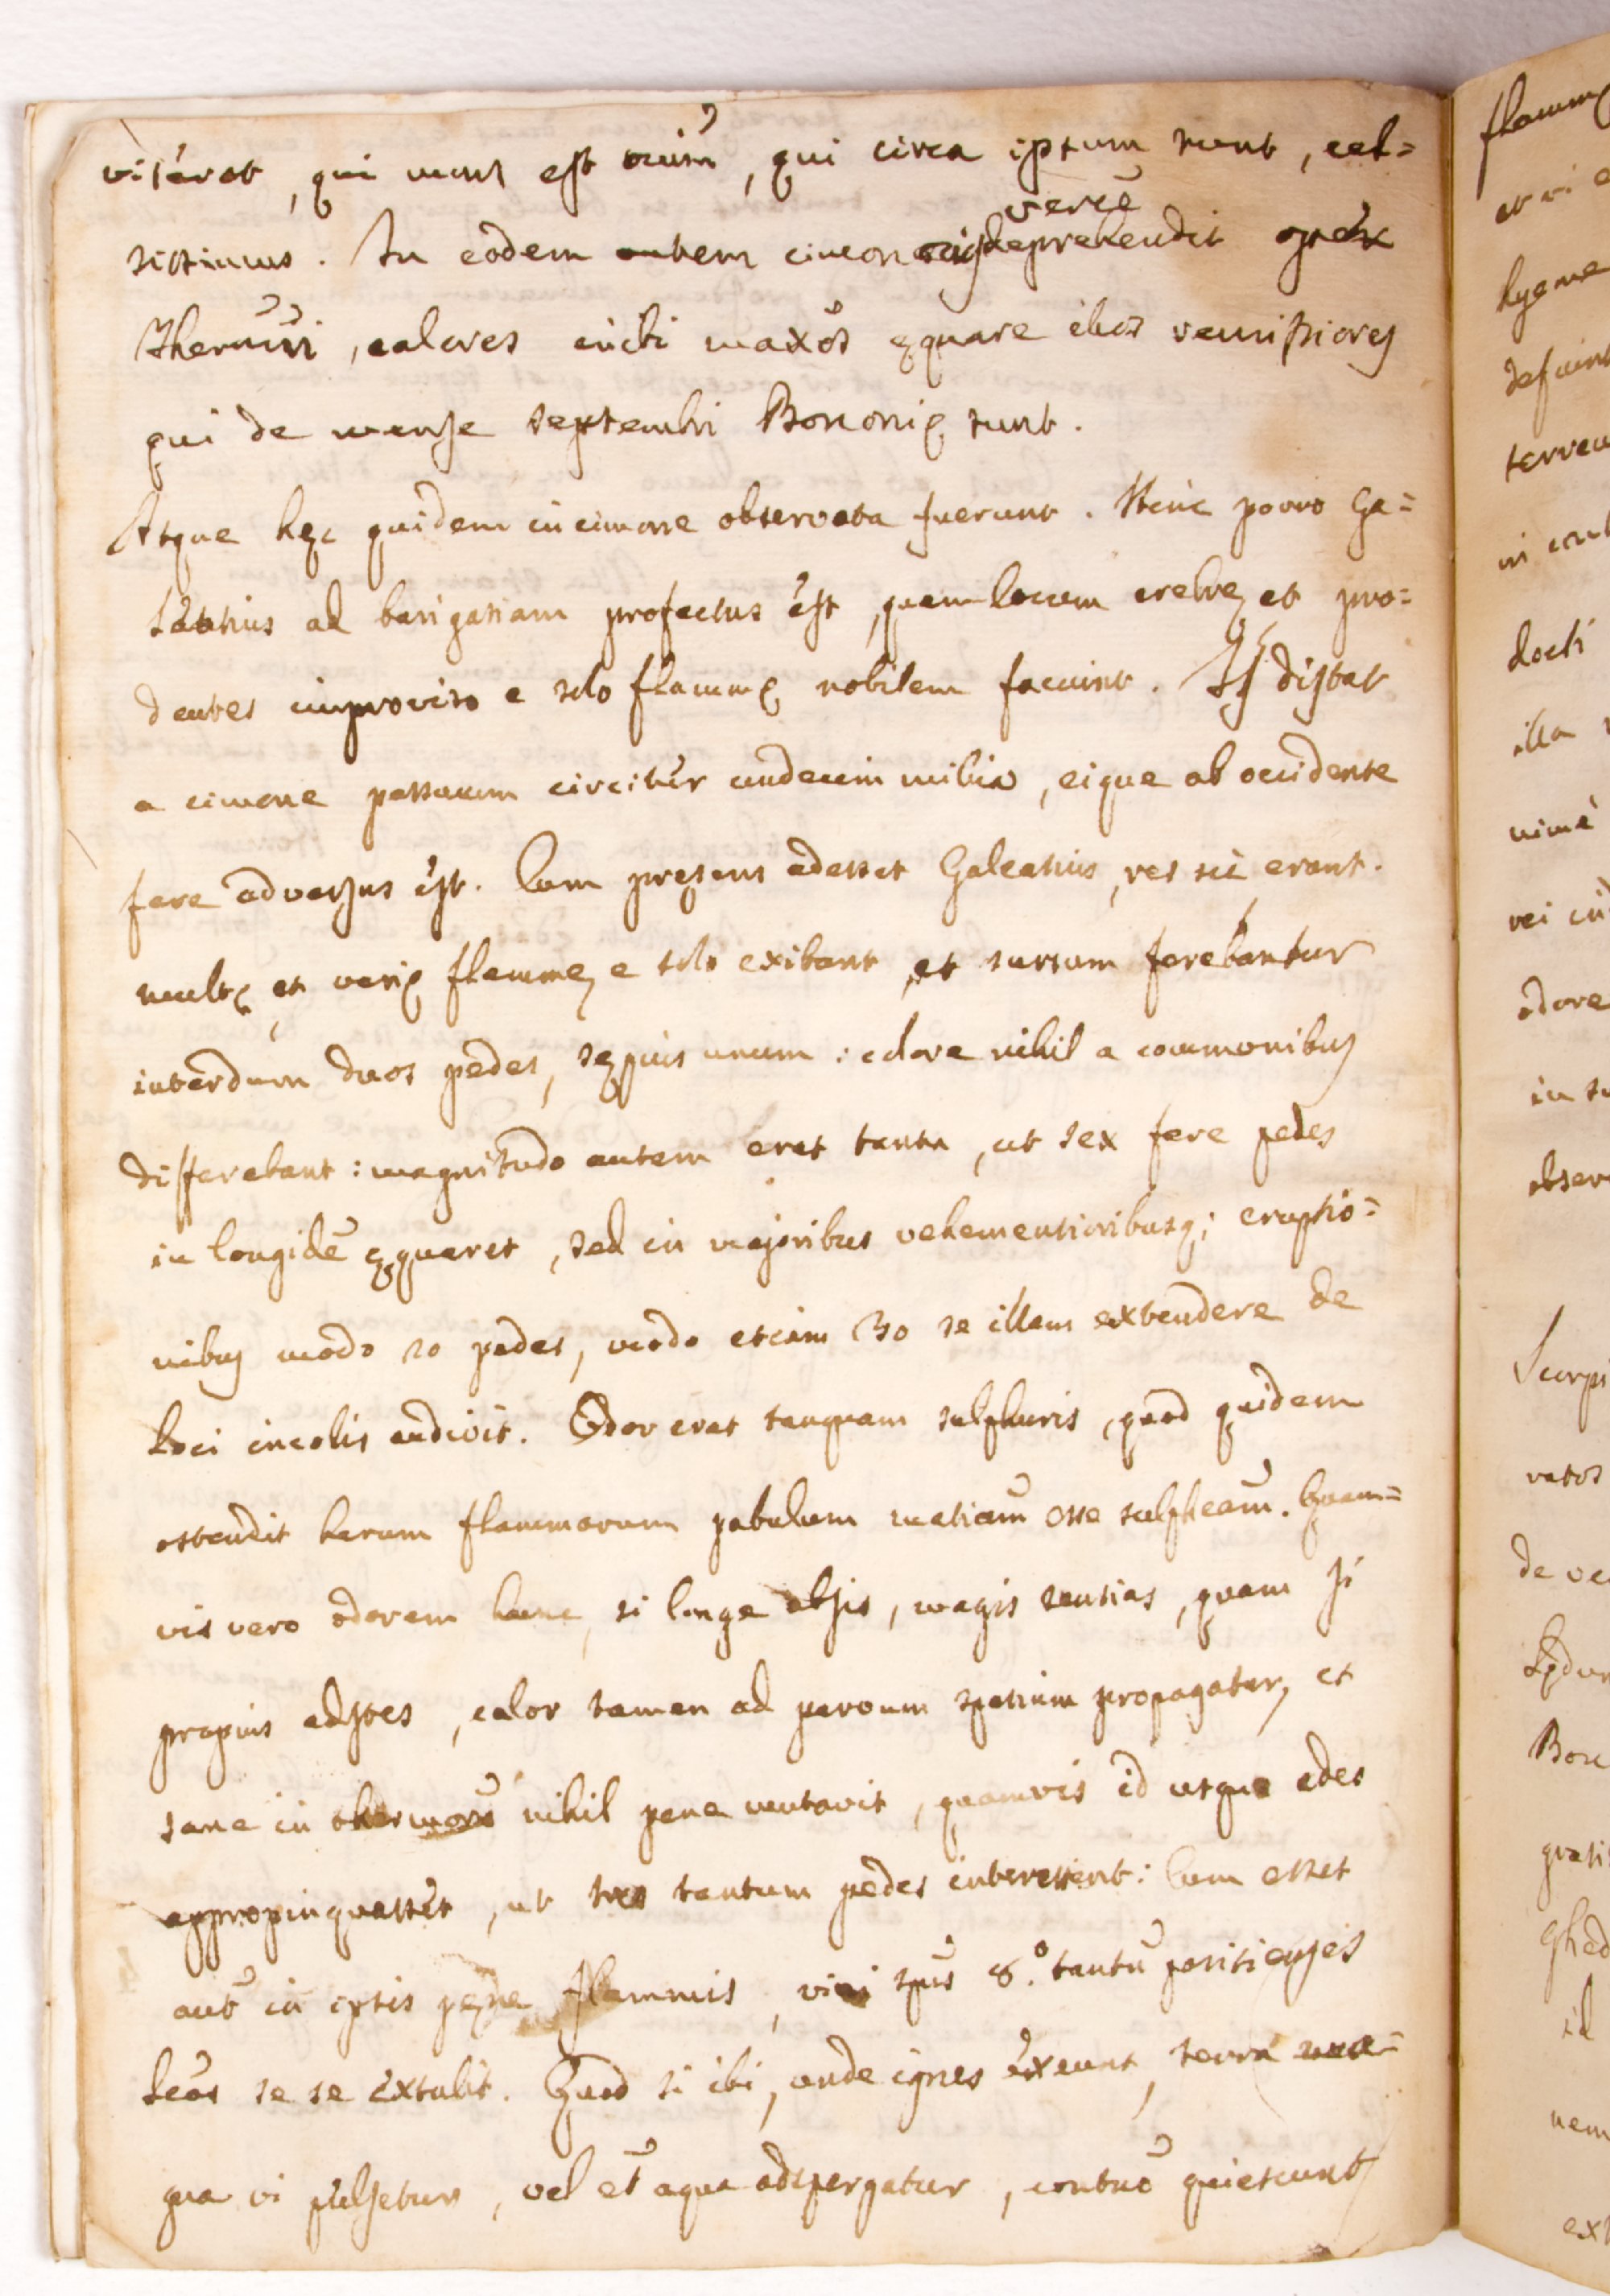 viserat, qui mons est oium, qui circa ipsum sunt, cel=
sissimus. In eodem autem cimone deprehendit vere ope
thermri, calores inibi maxos ęquare illos remissiores
qui de mense septembri Bononię sunt.
Atque hęc quidem in cimone observata fuerunt. Hinc porro Ga=
leatius ad barigatiam profectus est, quem locum crebrę et pro=
deuntes improviso e solo flammę nobilem faciunt. Is distat
a cimone passuum circiter undecim milia, eique ab occidente
fere adversus est. Cum pręsens adesset Galeatius, res sic erant.
multę et varię flammę e solo exibant, et sursum ferebantur
interdum duos pedes, sępius unum: colore nihil a communibus
differebant: magnitudo autem erat tanta, ut sex fere pedes
in longide ęquaret, sed in majoribus vehementioribusq; eruptio=
nibus modo 20 pedes, modo etiam 30 se illam extendere de
loci incolis audivit. Odor erat tanquam sulphuris, quod quidem
ostendit harum flammarum pabulum matiam esse sulpheam. Quam=
vis vero odorem hunc, si longe absis, magis sentias, quam si
propius adstes, calor tamen ad parvum spatium propagatur, et
sane in thermoro nihil pene mutavit, quamvis id usque adeo
appropinquasset, ut tres tantum pedes interessent: Cum esset
aut in ipsis pęne flammis, vini spus 8.° tantu parisienses
leos se se extulit. Quod si ibi, unde ignes exeunt, terra ma=
gna vi pulsetur, vel et aqua adspergatur, contuo quiescunt